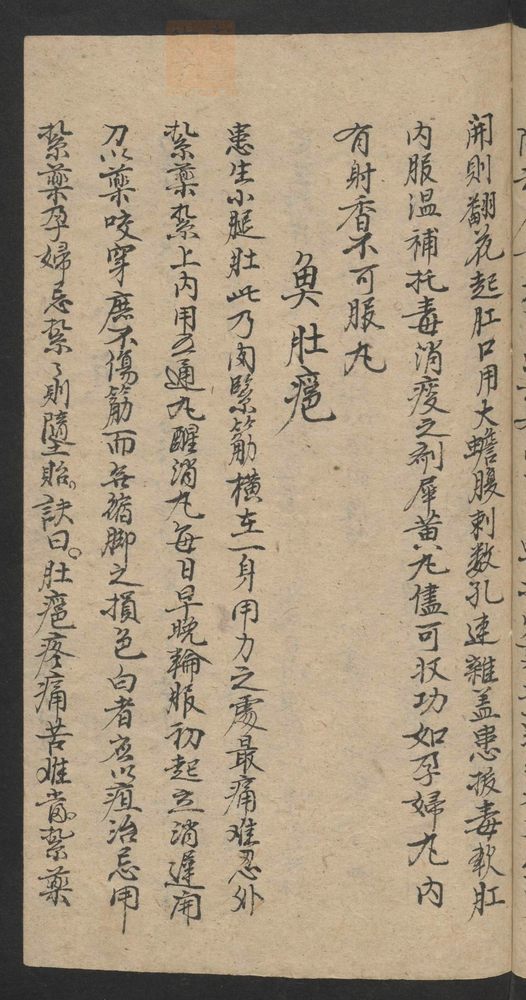 開則翻花起肛口用大蟾腹刺数孔連雜盖患拔毒軟肛
内服温補托毒消痰之剤犀黄丸儘可収功如孕婦丸内
有射香不可服丸
魚肚癰
患生小腿肚此乃肉緊筋横在一身用力之處最痛难忍外
紮藥紮上内用五通丸醒消丸每日早晚輪服初起立消遲用
刀以藥咬穿庶不傷筋而無縮脚之損色白者应以疽治忌用
紮藥孕婦忌紮々則墮胎。訣曰。肚癰疼痛苦难當。紮藥